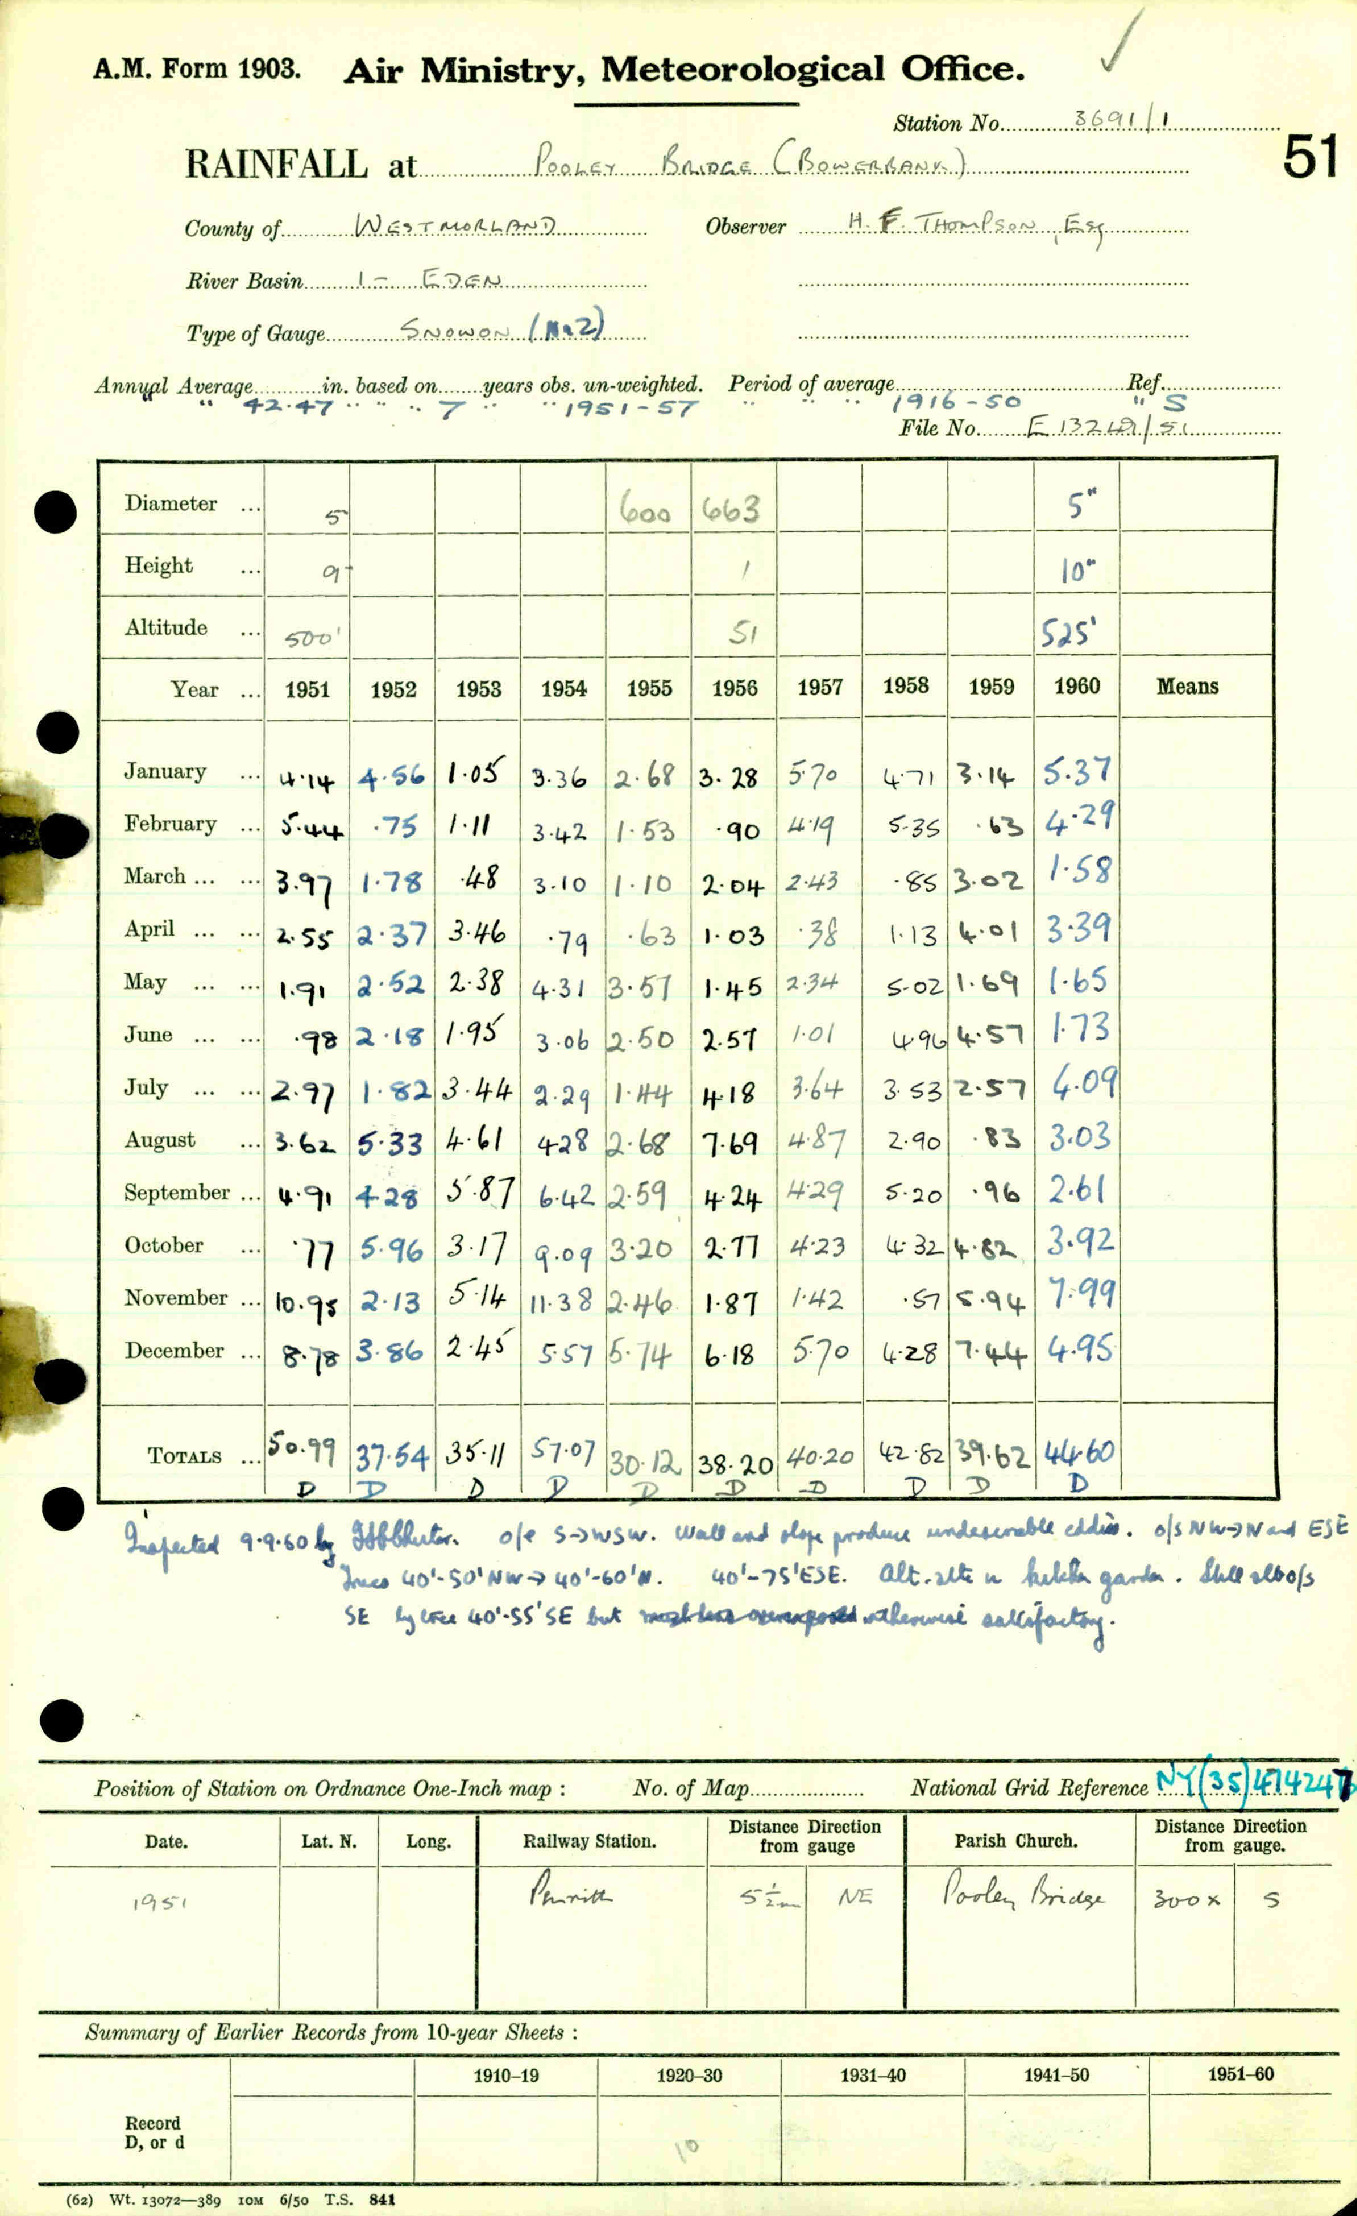 A.M. Form 1903. Air Ministry, Meteorological Office.
Station No. 3691/1
51
RAINFALL at POOLEY BRIDGE (BOWERBANK)
County of WESTMORLAND Observer H. F. THOMPSON, Esq
River Basin 1- EDEN
Type of Gauge SNOWDON (No 2)
Annual Average in. based on years obs. un-weighted. Period of average Ref.
" 42.47 " " " 7 " " 1951-57 " " " 1916-50 " S
File No. E 13249/51
Diameter ... 5 600 663 5"
Height ... 9 1 10"
Altitude ... 500' 51 525'
Year ... 1951 1952 1953 1954 1955 1956 1957 1958 1959 1960 Means
January ... 4.14 4.56 1.05 3.36 2.68 3.28 5.70 4.71 3.14 5.37
February ... 5.44 .75 1.11 3.42 1.53 .90 4.19 5.35 .63 4.29
March ... ... 3.97 1.78 .48 3.10 1.10 2.04 2.43 .85 3.02 1.58
April ... ... 2.55 2.37 3.46 .79 .63 1.03 .38 1.13 4.01 3.39
May ... ... 1.91 2.52 2.38 4.31 3.57 1.45 2.34 5.02 1.69 1.65
June ... ... .98 2.18 1.95 3.06 2.50 2.57 1.01 4.96 4.57 1.73
July ... ... 2.97 1.82 3.44 2.29 1.44 4.18 3.64 3.53 2.57 4.09
August ... 3.62 5.33 4.61 4.28 2.68 7.69 4.87 2.90 .83 3.03
September ... 4.91 4.28 5.87 6.42 2.59 4.24 4.29 5.20 .96 2.61
October ... .77 5.96 3.17 9.09 3.20 2.77 4.23 4.32 4.82 3.92
November ... 10.95 2.13 5.14 11.38 2.46 1.87 1.42 .57 5.94 7.99
December ... 8.78 3.86 2.45 5.57 5.74 6.18 5.70 4.28 7.44 4.95
TOTALS ... 50.99 37.54 35.11 57.07 30.12 38.20 40.20 42.82 39.62 44.60
D D D D D D D D D D
Inspected 9.9.60 by o/e S→WSW. Wall and slope produce undesirable eddies. o/s NW→N and ESE
Trees 40'-50' NW→40'-60'N. 40'-75'ESE. Alt. site in kitchen garden. Still also o/s
SE by tree 40'-55' SE but otherwise satisfactory.
Position of Station on Ordnance One-Inch map : No. of Map National Grid Reference NY(35)474247
Date. Lat. N. Long. Railway Station. Distance from Direction gauge Parish Church. Distance from Direction gauge.
1951 Penrith 5½m NE Pooley Bridge 300x S
Summary of Earlier Records from 10-year Sheets :
1910–19 1920–30 1931–40 1941–50 1951–60
Record
D, or d
10
(62) Wt. 13072—389 10M 6/50 T.S. 841